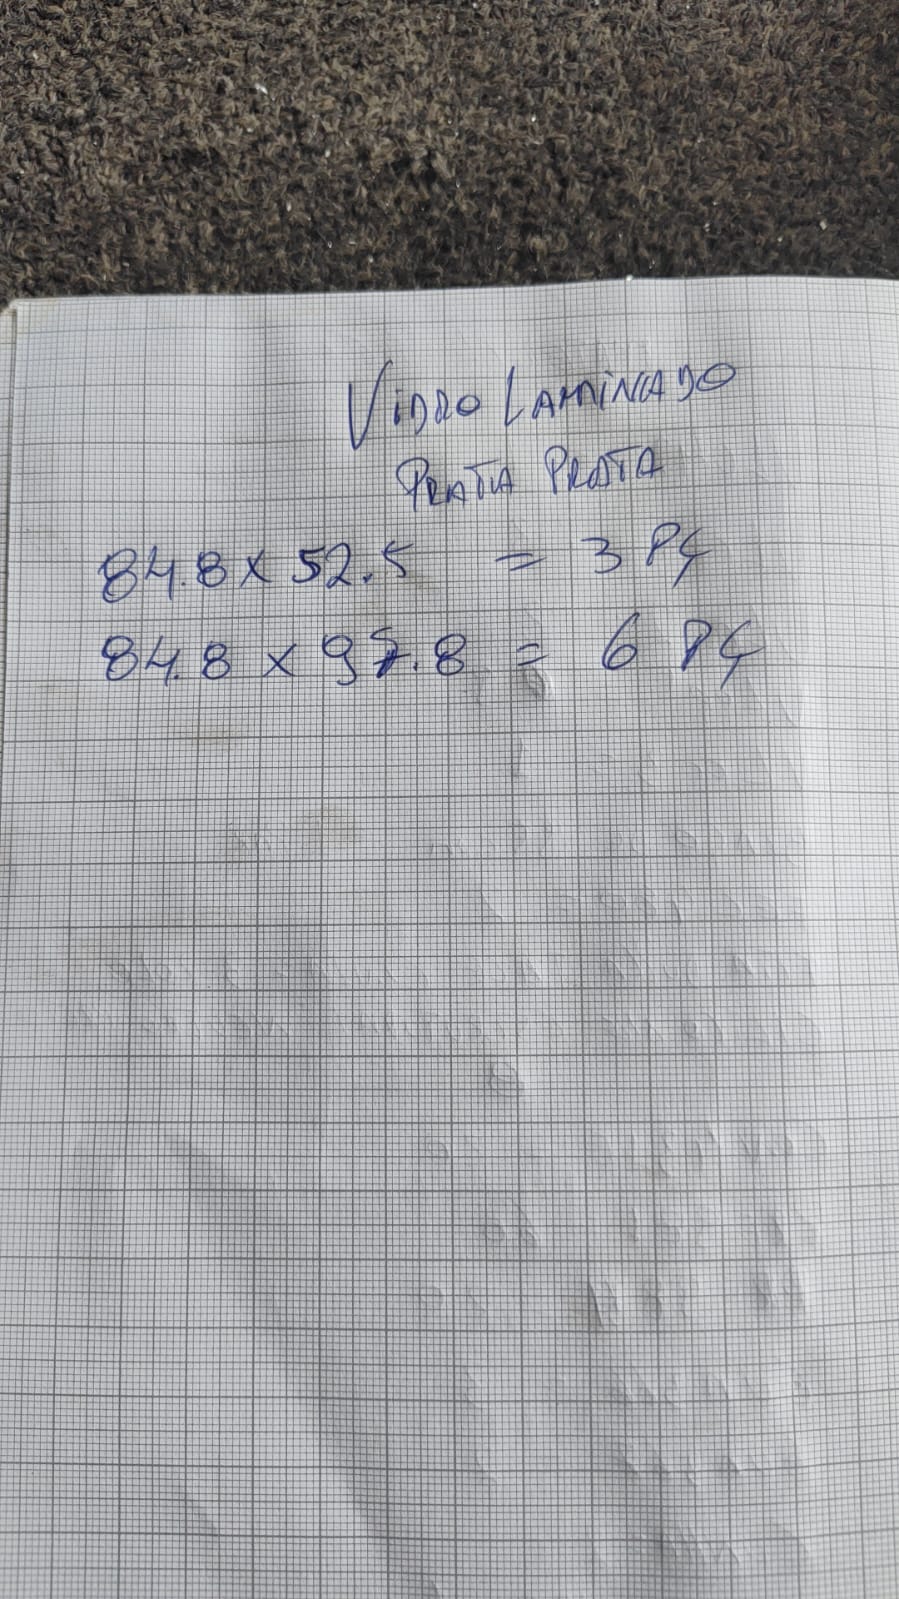 VIDRO LAMINADO
PRATA PRATA
84.8 x 52.5 = 3 PÇ
84.8 x = 6 PÇ